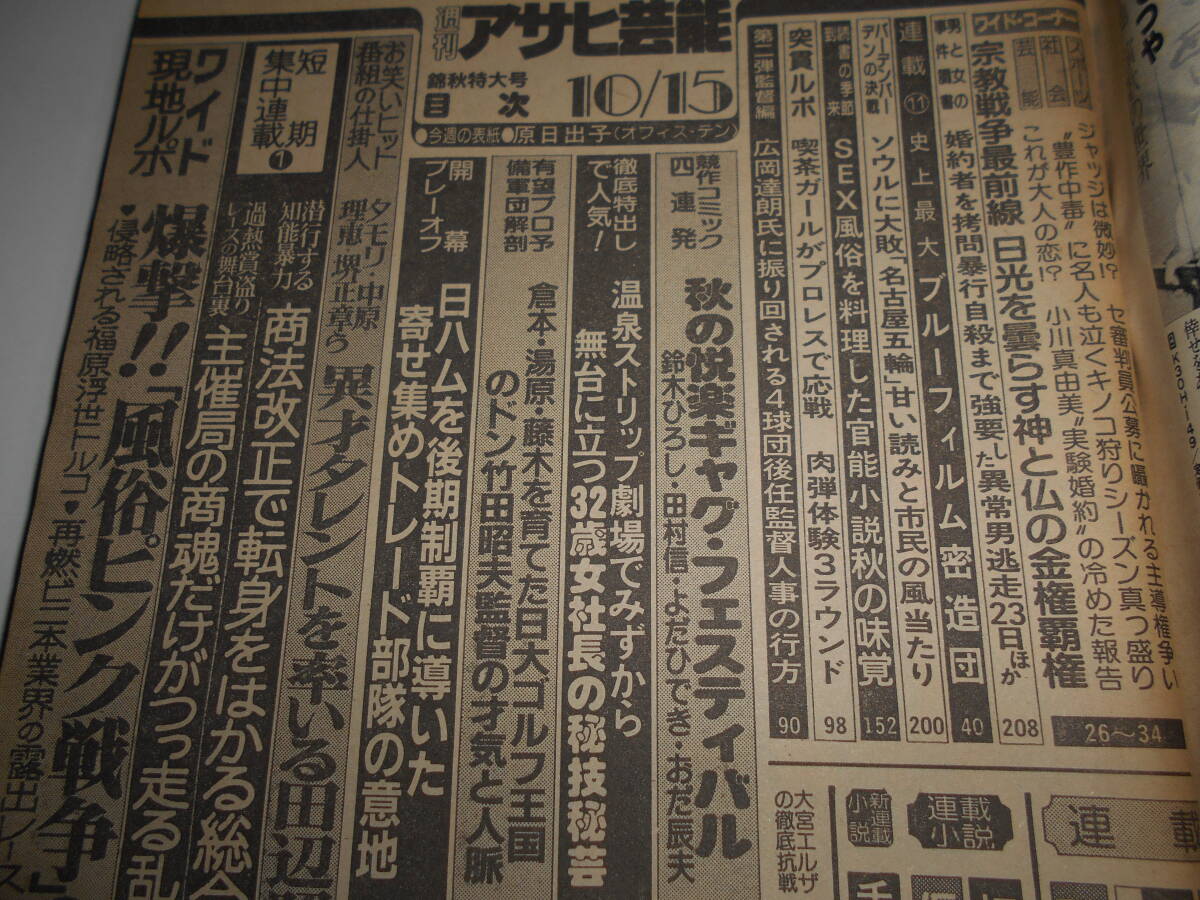 週刊
アサヒ芸能
錦秋特大号
目次
10/15
●今週の表紙●原日出子〈オフィス・テン〉
ワイド・コーナー
スポーツ
ジャッジは微妙!? セ審判員公募に囁かれる主導権争い
社会
“豊作中毒”に名人も泣くキノコ狩りシーズン真っ盛り
芸能
これが大人の恋!? 小川真由美“実験婚約”の冷めた報告
26〜34
宗教戦争最前線 日光を曇らす神と仏の金権覇権
208
男と女の事件調書
婚約者を拷問暴行自殺まで強要した異常男逃走23日ほか
40
連載⑪
史上最大ブルーフィルム密造団
200
バーデンバーデンの決戦
ソウルに大敗「名古屋五輪」甘い読みと市民の風当たり
152
読書の季節到来
SEX風俗を料理した官能小説秋の味覚
98
突貫ルポ
喫茶ガールがプロレスで応戦 肉弾体験3ラウンド
90
第二弾監督編
広岡達朗氏に振り回される4球団後任監督人事の行方
競作コミック四連発
秋の悦楽ギャグ・フェスティバル
鈴木ひろし・田村信・よだひでき・おだ辰夫
徹底特出しで人気!
温泉ストリップ劇場でみずから
舞台に立つ32歳女社長の秘技秘芸
有望プロ予備軍団解剖
倉本・湯原・藤木を育てた日大ゴルフ王国
のドン竹田昭夫監督の才気と人脈
開幕プレーオフ
日ハムを後期制覇に導いた
寄せ集めトレード部隊の意地
お笑いヒット番組の仕掛人
タモリ・中原理恵・堺正章ら
異才タレントを率いる田辺
短期集中連載❶
潜行する知能暴力
商法改正で転身をはかる総会
過熱賞金盗りレースの舞台裏
主催局の商魂だけがつっ走る乱
ワイド現地ルポ
爆撃!!「風俗ピンク戦争」
♥侵略される福原浮世トルコ♥再燃ビニ本業界の露出レース
連載
連載小説
新連載小説
大宮エルザの徹底抗戦